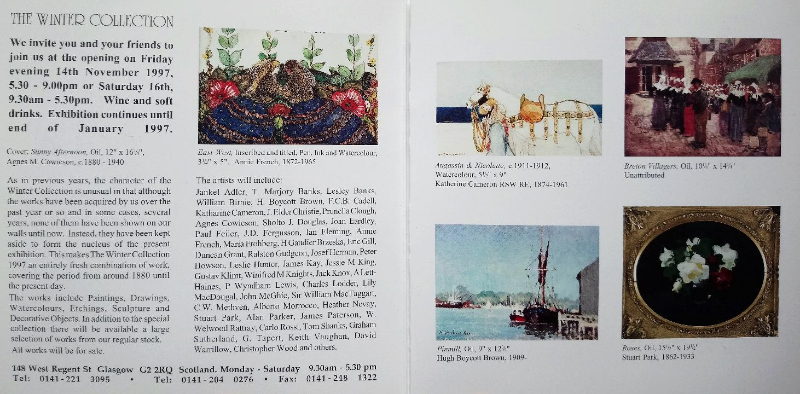 THE WINTER COLLECTION
We invite you and your friends to
join us at the opening on Friday
evening 14th November 1997,
5.30 - 9.00pm or Saturday 16th,
9.30am - 5.30pm. Wine and soft
drinks. Exhibition continues until
end of January 1997.
Cover: Sunny Afternoon, Oil, 12" x
Agnes M. Cowieson, c.1880 - 1940
As in previous years, the character of the
Winter Collection is unusual in that although
the works have been acquired by us over the
past year or so and in some cases, several
years, none of them have been shown on our
walls until now. Instead, they have been kept
aside to form the nucleus of the present
exhibition. This makes The Winter Collection
1997 an entirely fresh combination of work,
covering the period from around 1880 until
the present day.
The works include Paintings, Drawings,
Watercolours, Etchings, Sculpture and
Decorative Objects. In addition to the special
collection there will be available a large
selection of works from our regular stock.
All works will be for sale.
East West, Inscribed and titled, Pen, Ink and Watercolour,
x 5". Annie French, 1872-1965
The artists will include:
Jankel Adler, T. Marjory Banks, Lesley Banks,
William Birnie, H. Boycott Brown, F.C.B. Cadell,
Katharine Cameron, J. Elder Christie, Prunella Clough,
Agnes Cowieson, Sholto J. Douglas, Joan Eardley,
Paul Feiler, J.D. Fergusson, Ian Fleming, Annie
French, Maria Frohberg, H Gaudier Brzeska, Eric Gill,
Duncan Grant, Ralston Gudgeon, Josef Herman, Peter
Howson, Leslie Hunter, James Kay, Jessie M King,
Gustav Klimt, Winifred M Knights, Jack Knox, A Lett-
Haines, P Wyndham Lewis, Charles Lodder, Lily
MacDougal, John McGhie, Sir William MacTaggart,
C.W. Methven, Alberto Morrocco, Heather Nevay,
Stuart Park, Alan Parker, James Paterson, W.
Welwood Rattray, Carlo Rossi, Tom Shanks, Graham
Sutherland, G. Tapert, Keith Vaughan, David
Warrillow, Christopher Wood and others.
148 West Regent St Glasgow G2 2RQ Scotland. Monday - Saturday 9.30am - 5.30 pm
Tel: 0141-221 3095 • Tel: 0141-204 0276 • Fax: 0141-218 1322
Aucassin & Nicolette, c.1911-1912,
Watercolour, x 9"
Katharine Cameron RSW RE, 1874-1961
Breton Villagers, Oil,
Unattributed
Pinmill, Oil, 9" x
Hugh Boycott Brown, 1909-
Roses, Oil,
Stuart Park, 1862-1933